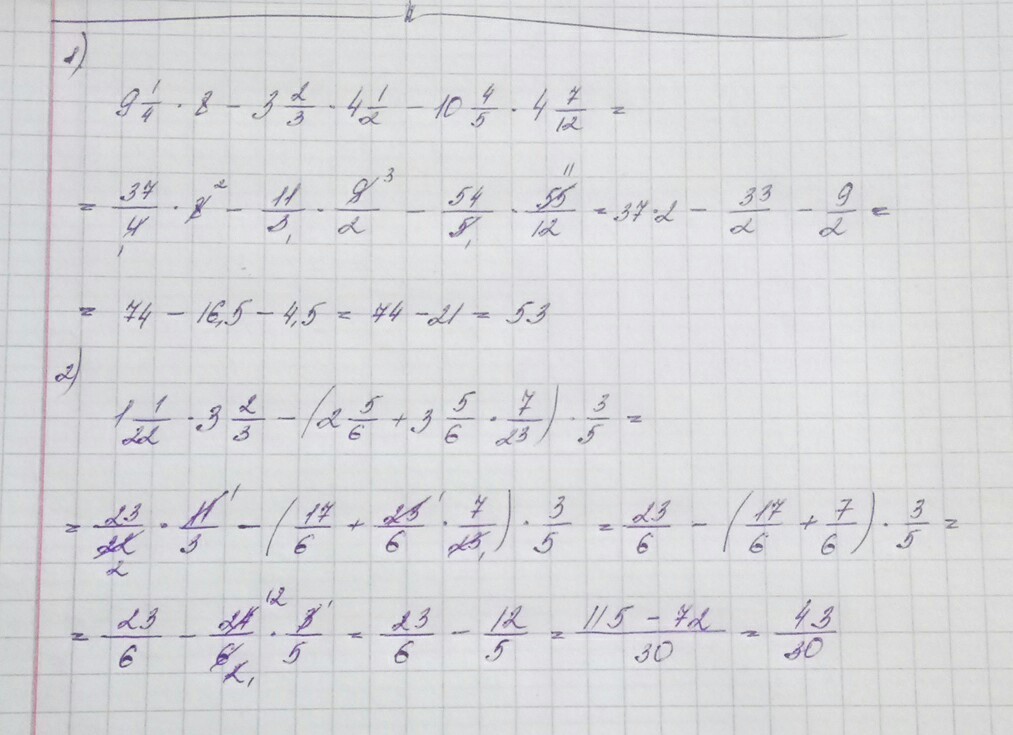 1)
9 1/4 · 8 − 3 2/3 · 4 1/2 − 10 4/5 · 4 7/12 =
= 37/4 1 · 8 2 − 11/3 1 · 9 3/2 − 54/5 1 · 55 11/12 = 37·2 − 33/2 − 9/2 =
= 74 − 16,5 − 4,5 = 74 − 21 = 53
2)
1 1/22 · 3 2/3 − (2 5/6 + 3 5/6 · 7/23) · 3/5 =
= 23/22 2 · 11 1/3 − (17/6 + 23 1/6 · 7/23 1) · 3/5 = 23/6 − (17/6 + 7/6) · 3/5 =
= 23/6 − 24 12/6 2 1 · 3 1/5 = 23/6 − 12/5 = 115 − 72/30 = 43/30